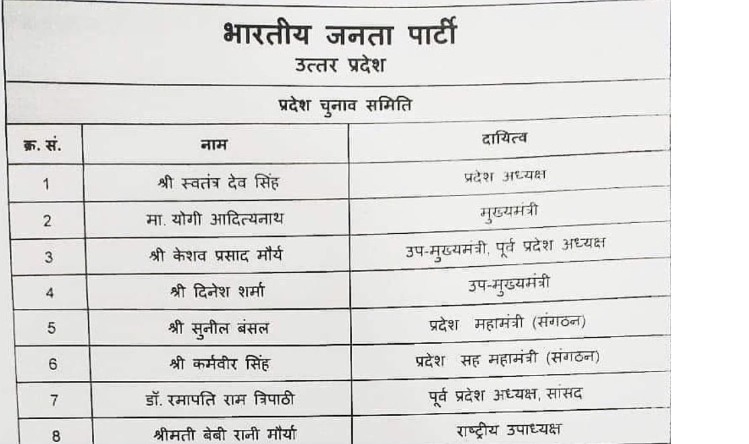 भारतीय जनता पार्टी
उत्तर प्रदेश
प्रदेश चुनाव समिति
क्र. सं. नाम दायित्व
1 श्री स्वतंत्र देव सिंह प्रदेश अध्यक्ष
2 मा. योगी आदित्यनाथ मुख्यमंत्री
3 श्री केशव प्रसाद मौर्य उप-मुख्यमंत्री, पूर्व प्रदेश अध्यक्ष
4 श्री दिनेश शर्मा उप-मुख्यमंत्री
5 श्री सुनील बंसल प्रदेश महामंत्री (संगठन)
6 श्री कर्मवीर सिंह प्रदेश सह महामंत्री (संगठन)
7 डॉ. रमापति राम त्रिपाठी पूर्व प्रदेश अध्यक्ष, सांसद
8 श्रीमती बेबी रानी मौर्या राष्ट्रीय उपाध्यक्ष